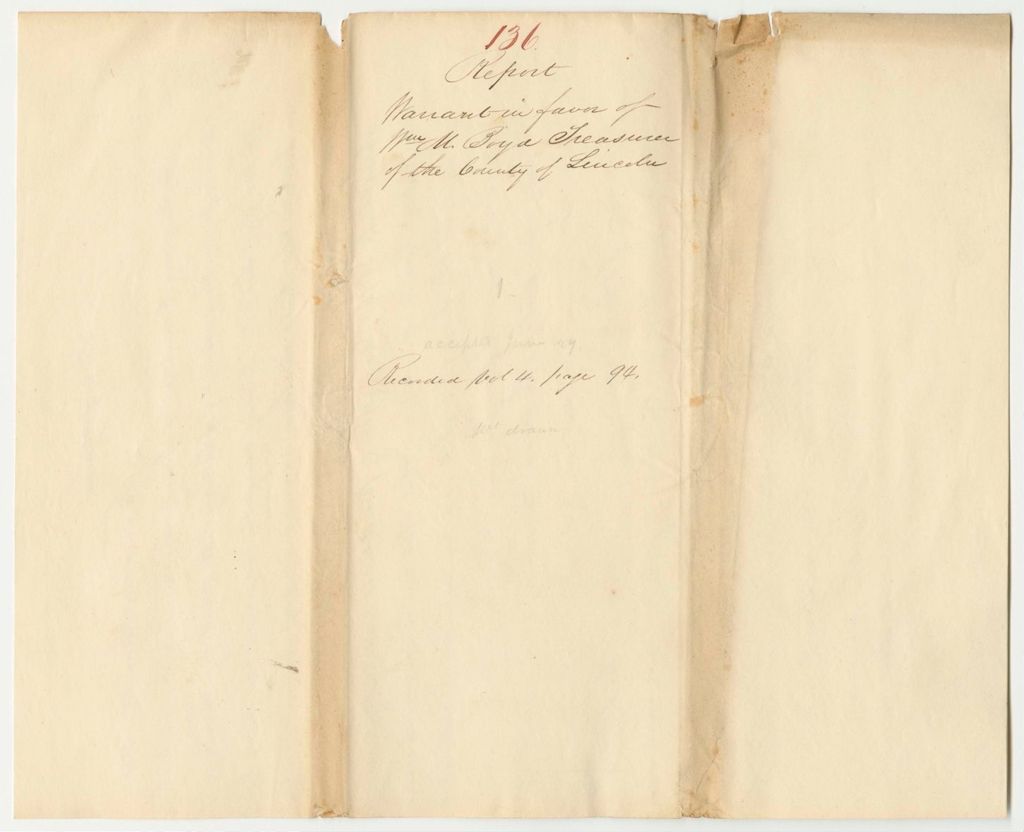 136.
Report
Warrant in favor of
Wm M. Boyd Treasurer
of the County of Lincoln
1
accepted June 29.
Recorded Vol 4. page 94.
Wt drawn